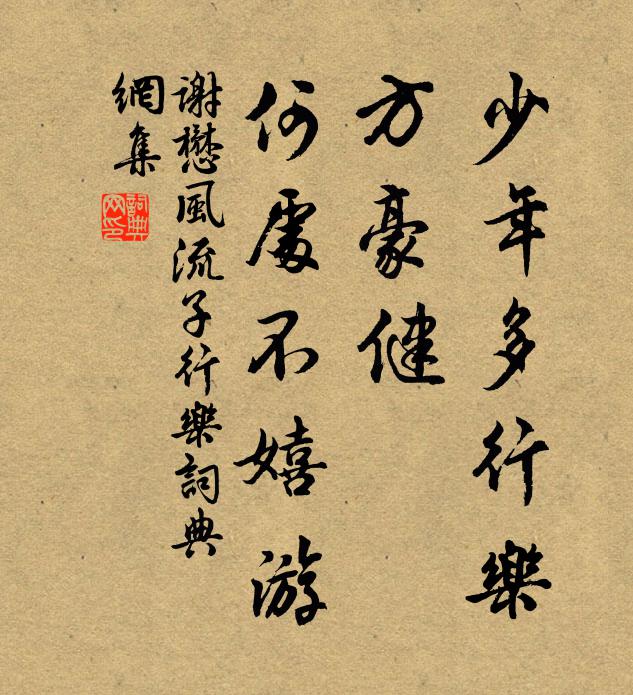 少年多行樂
方豪健
何處不嬉游
謝懋風流子行樂詞典
網集
詞典
网印